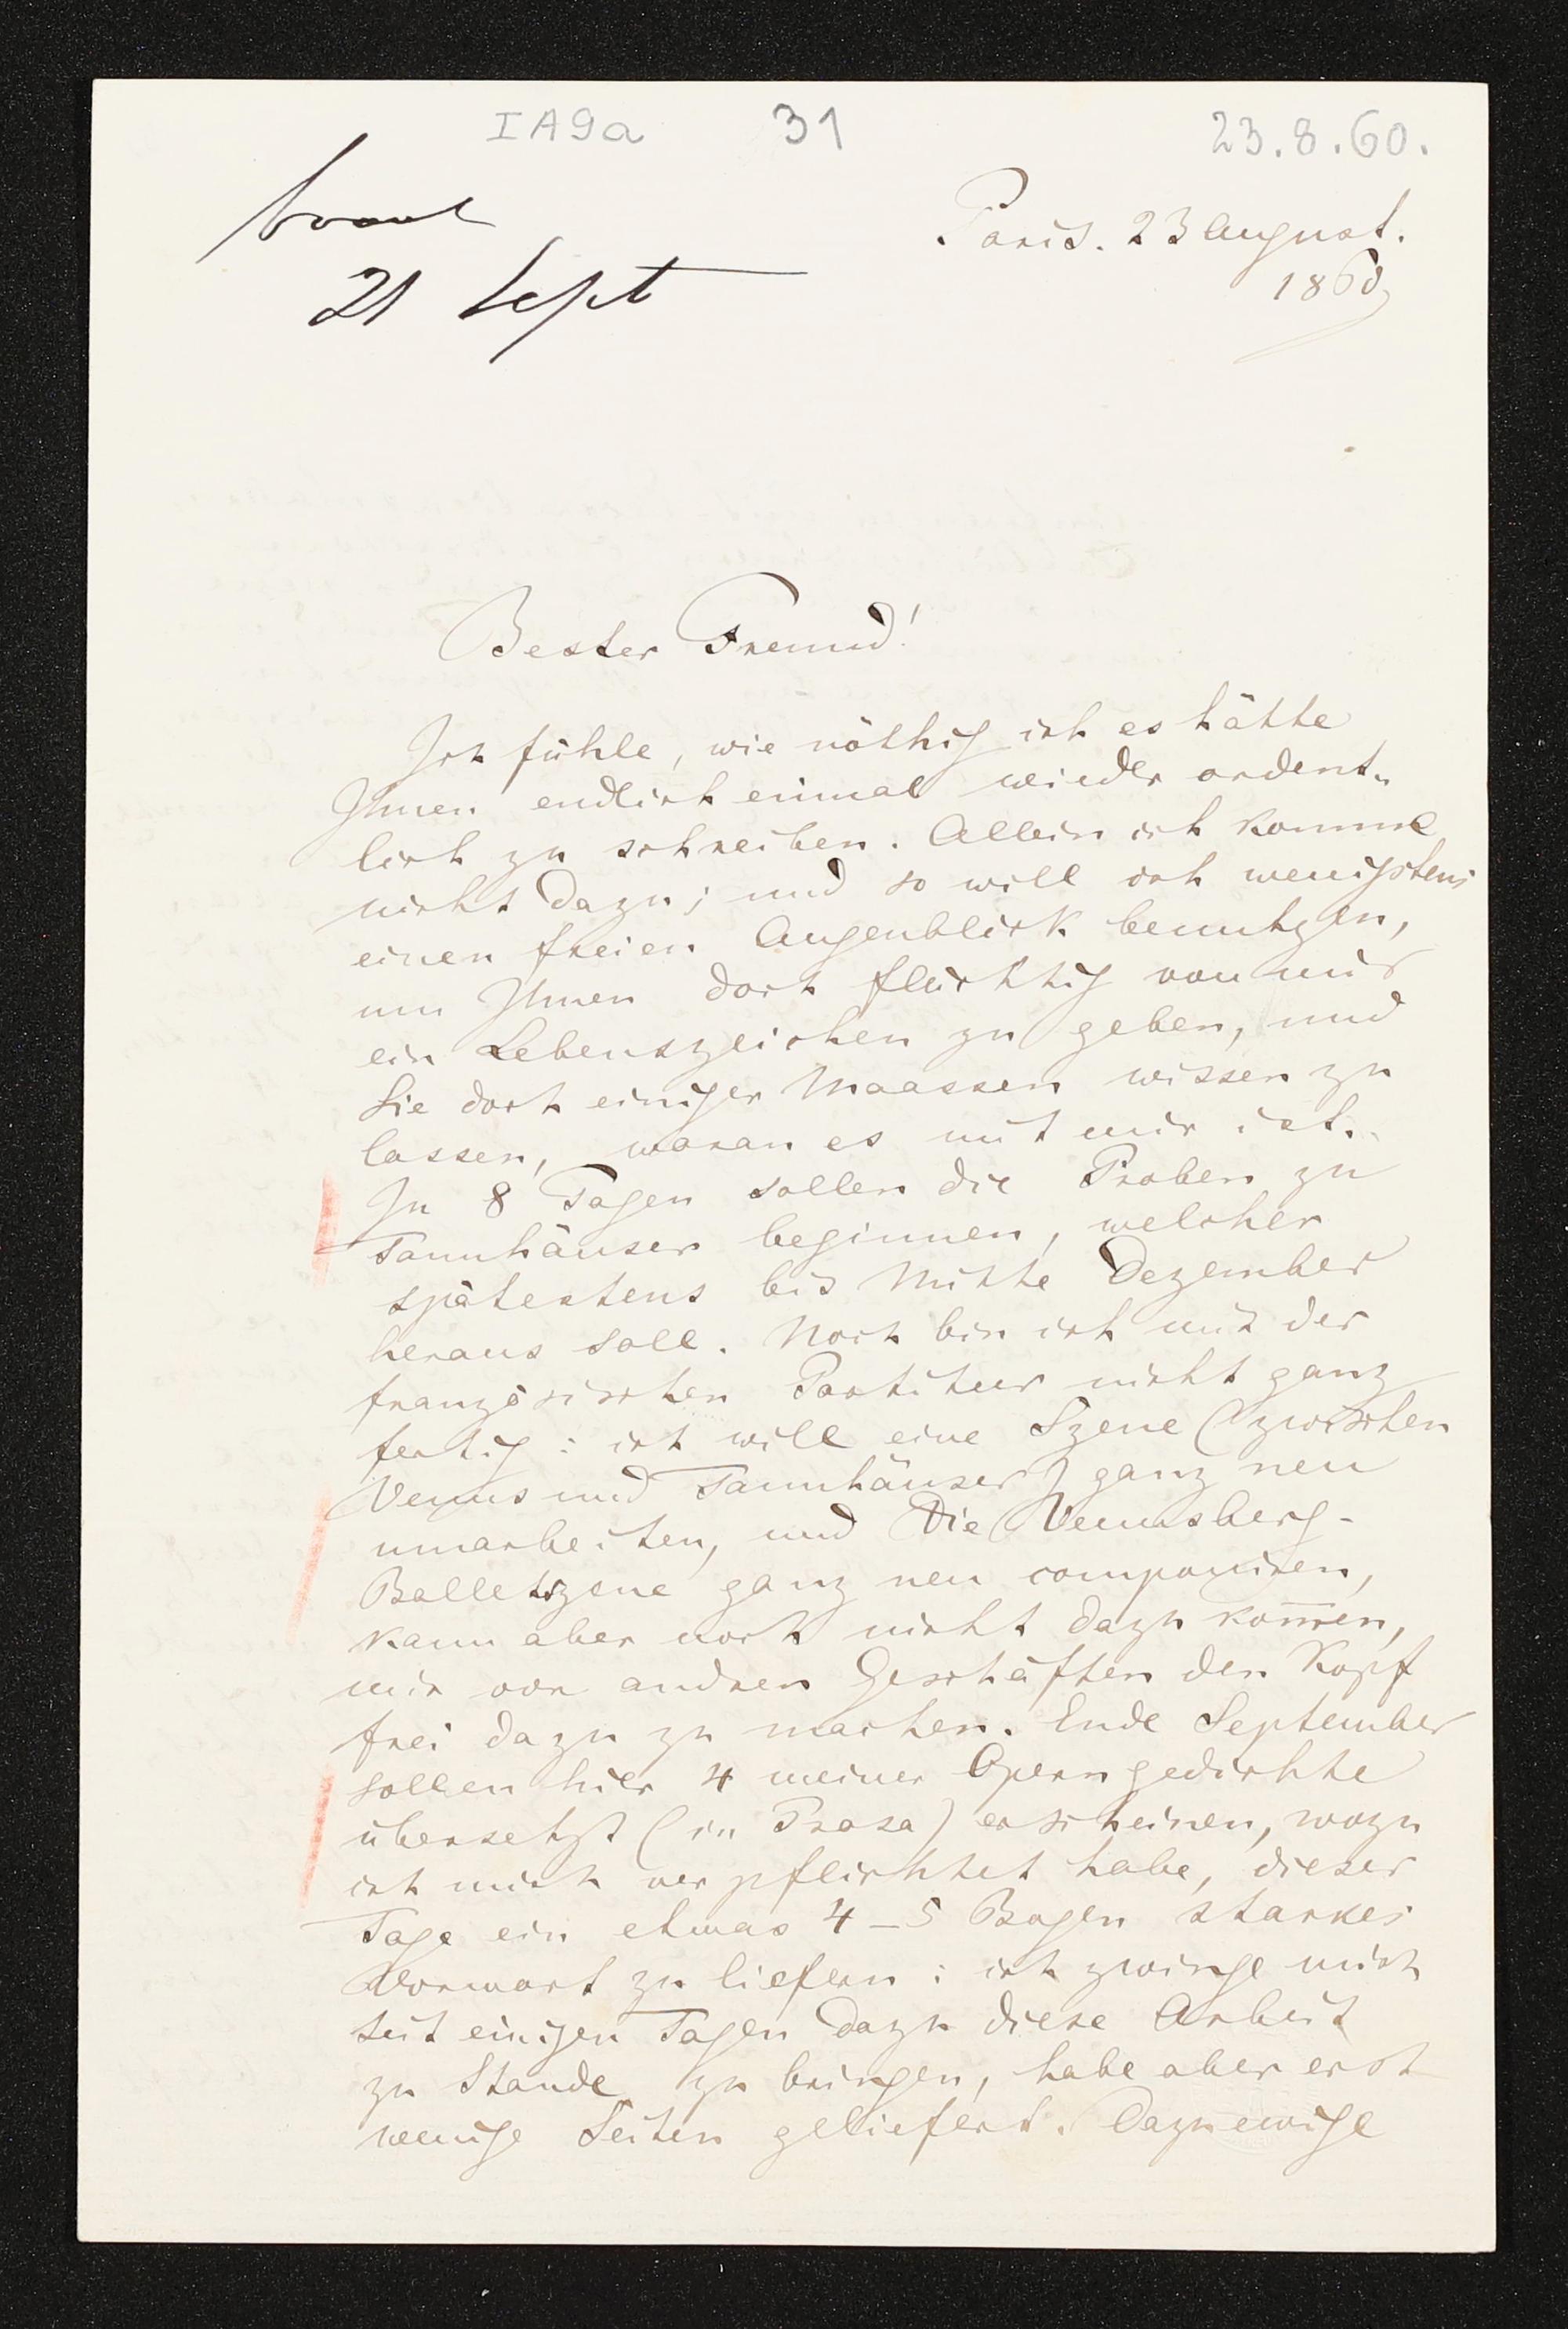 IA9a 31 23.8.60.
Paris. 23 August.
1860
21 Sept
Bester Freund!
Ich fühle, wie nöthig ich es hätte
Ihnen endlich einmal wieder ordent-
lich zu schreiben. Allein ich komme
nicht dazu; und so will ich wenigstens
einen freien Augenblick benutzen,
um Ihnen doch flüchtig von mir
ein Lebenszeichen zu geben, und
Sie doch einiger Maassen wissen zu
lassen, woran es mit mir ist.
In 8 Tagen sollen die Proben zu
Tannhäuser beginnen, welcher
spätestens bis Mitte Dezember
heraus soll. Noch bin ich mit der
französischen Partitur nicht ganz
fertig: ich will eine Szene (zwischen
Venus und Tannhäuser) ganz neu
umarbeiten, und die Venusberg-
Balletszene ganz neu componiren,
kann aber noch nicht dazu kom̅en,
mir vor andren Geschäften den Kopf
frei dazu zu machen. Ende September
sollen hier 4 meiner Operngedichte
übersetzt (in Prosa) erscheinen, wozu
ich mich verpflichtet habe, dieser
Tage ein etwas 4–5 Bogen starkes
Vorwort zu liefern: ich zwinge mich
seit einigen Tagen dazu diese Arbeit
zu Stande zu bringen, habe aber erst
wenige Seiten geliefert. Dazu ewige